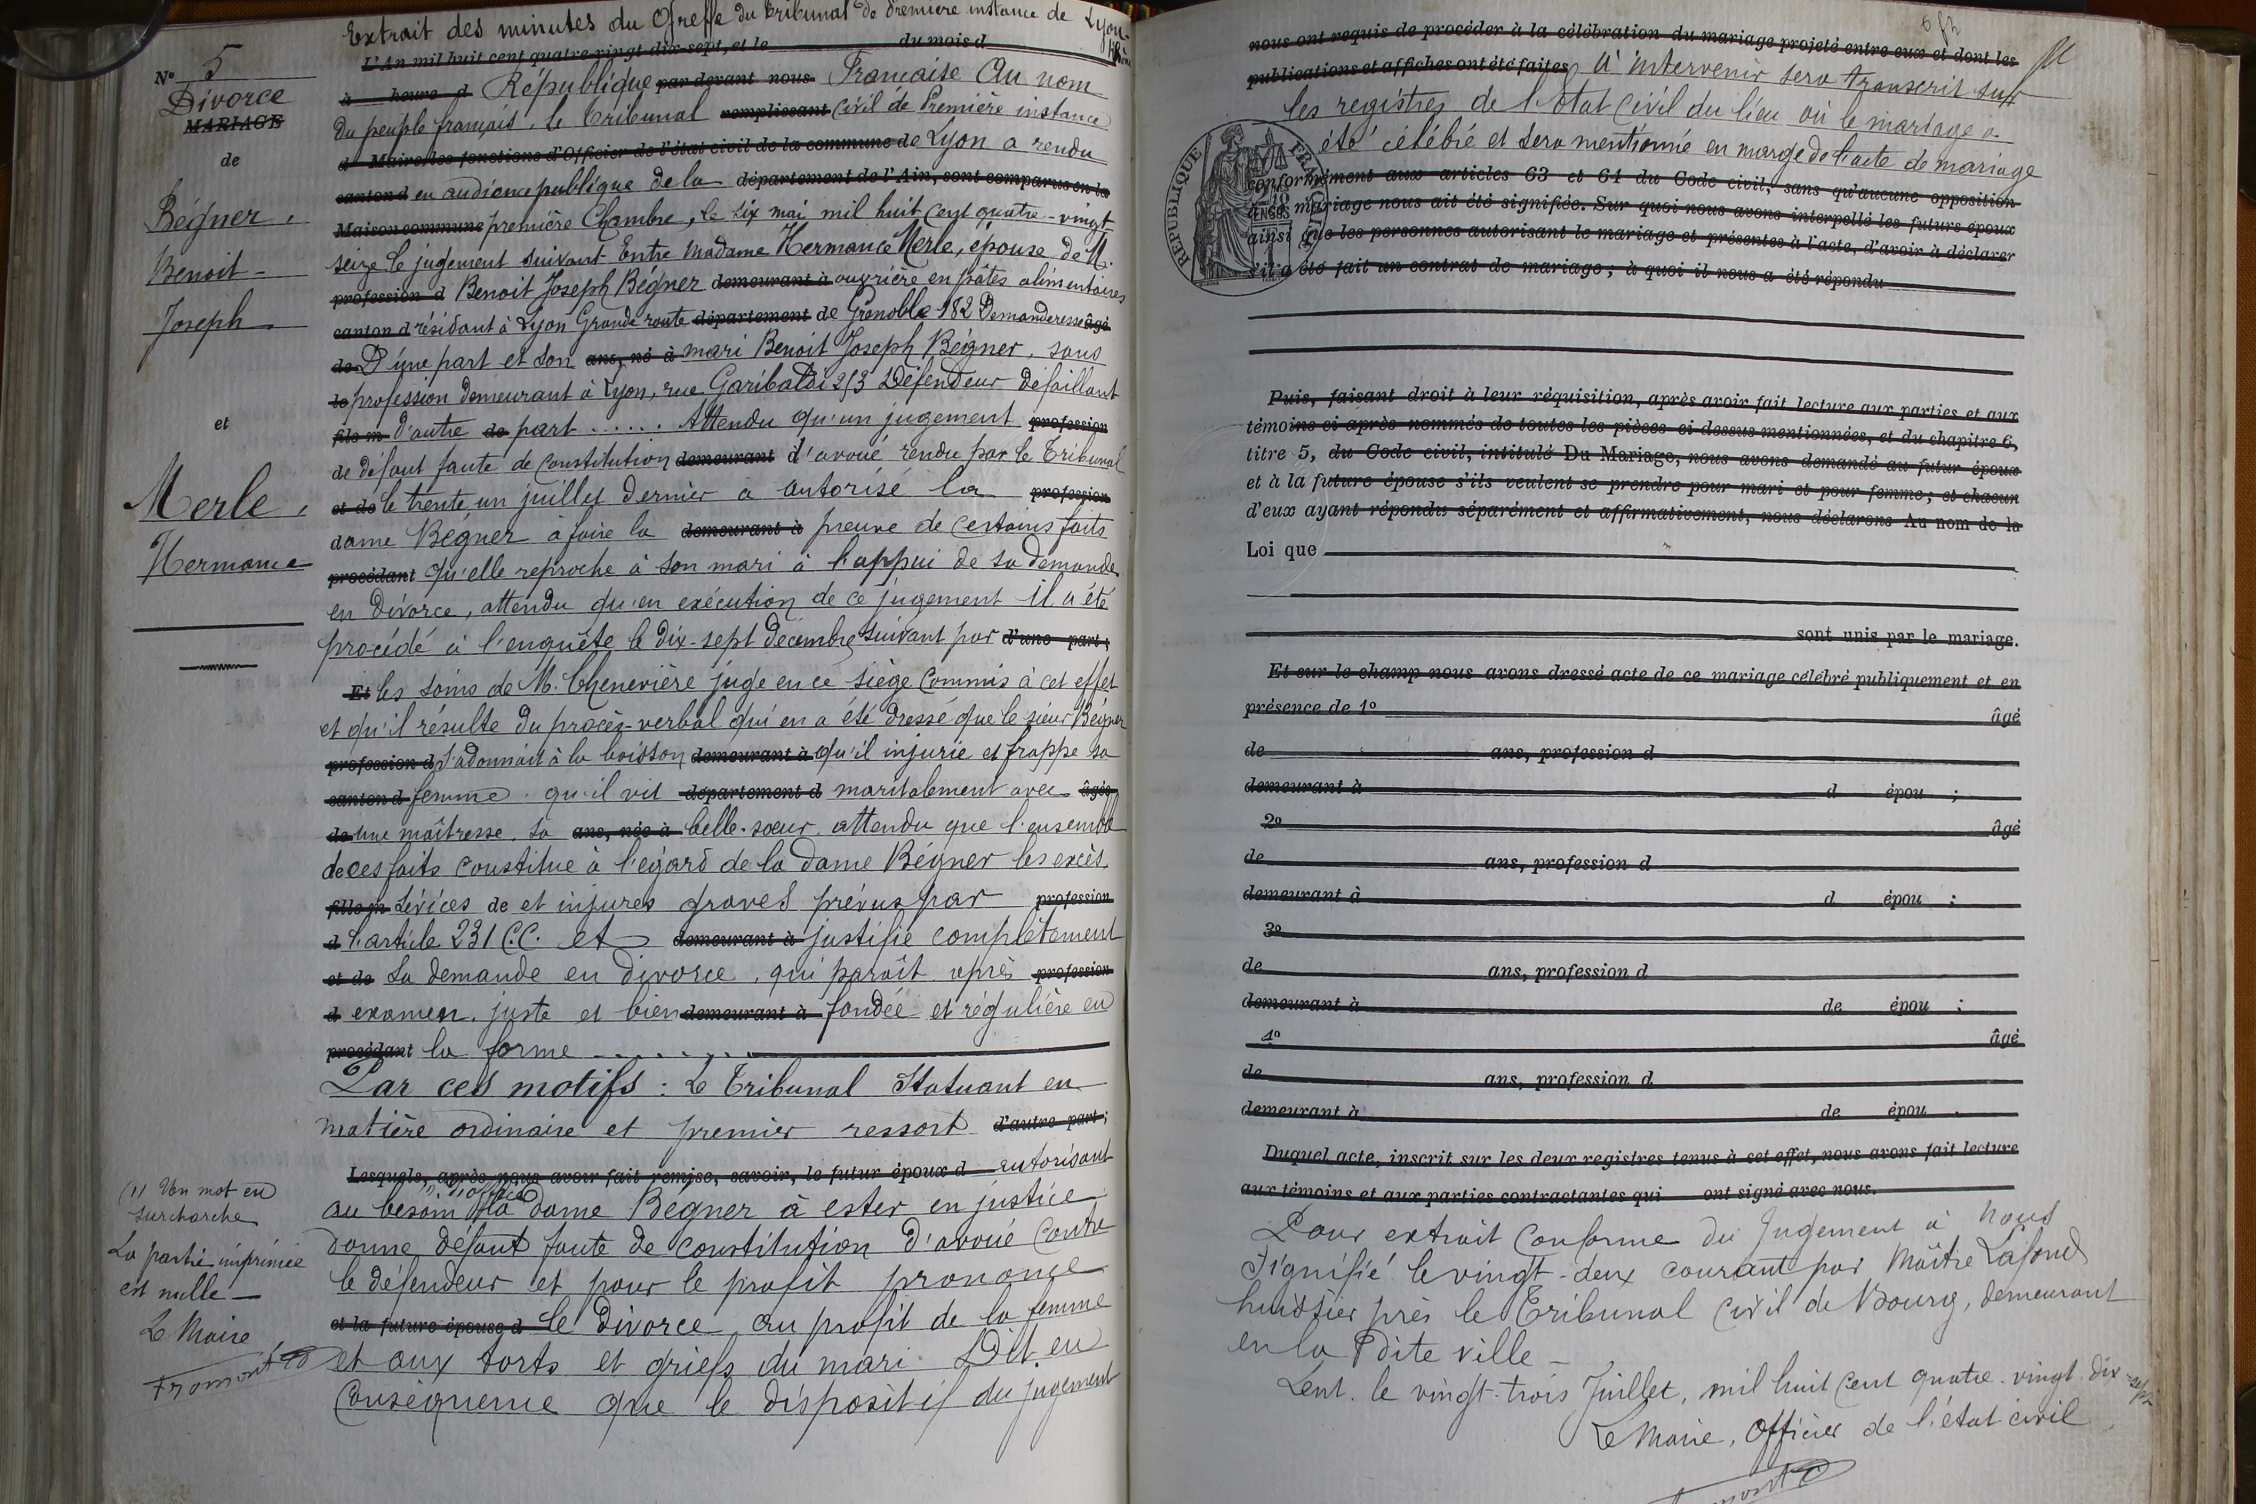 Extrait des minutes du Greffe du Tribunal de Première instance de Lyon
L'An mil huit cent quatre-vingt dix-sept, et le du mois d
N° 5
à heure d République par devant nous Francaise Au nom
Divorce
MARIAGE
du peuple français, le Tribunal remplissant civil de Première instance
d Maire les fonctions d'Officier de l'état civil de la commune de Lyon a rendu
de
canton d en audience publique de la département de l'Ain, sont comparus en la
Maison commune première Chambre, le six mai mil huit cent quatre-vingt
Bégner,
seize le jugement suivant Entre Madame Hermance Merle, épouse de M.
Benoit
profession d Benoit Joseph Bégner demeurant à ouvrière en pâtes alimentaires
Joseph
canton d résidant à Lyon Grande route département de Grenoble 182 Demanderesse âgé
de D'une part et son ans, né à mari Benoit Joseph Bégner, sans
le profession demeurant à Lyon, rue Garibaldi 253 Défendeur défaillant
et
fils m d'autre de part ...... Attendu qu'un jugement profession
de défaut faute de constitution demeurant d'avoué rendu par le Tribunal
Merle,
et de le trente un juillet dernier a autorisé la profession
dame Bégner à faire la demeurant à preuve de certains faits
Hermance
procédant qu'elle reproche à son mari à l'appui de sa demande
en divorce, attendu qu'en exécution de ce jugement il a été
procédé à l'enquête le dix-sept décembre suivant par d'une part;
Et les soins de M. Chenevière juge en ce siège commis à cet effet
et qu'il résulte du procès-verbal qui en a été dressé que le sieur Bégner
profession d s'adonnait à la boisson demeurant à qu'il injurie et frappe sa
canton d femme. qu'il vit département d maritalement avec âgée
de une maîtresse, sa ans, née à belle-sœur. attendu que l'ensemble
de ces faits constitue à l'égard de la dame Bégner les excès,
fille m sévices de et injures graves prévus par profession
d l'article 231 C.C. et demeurant à justifie complètement
et de sa demande en divorce, qui paraît après profession
d examen, juste et bien demeurant à fondée et régulière en
procédant la forme
Par ces motifs : Le Tribunal Statuant en
matière ordinaire et premier ressort d'autre part;
Lesquels, après nous avoir fait remise, savoir, le futur époux d autorisant
au besoin d'office la dame Bégner à ester en justice
donne défaut faute de constitution d'avoué contre
le défendeur et pour le profit prononce
et la future épouse d le divorce au profit de la femme
et aux torts et griefs du mari. Dit en
conséquence que le dispositif du jugement
(1) Un mot en
surcharche
La partie imprimée
est nulle
Le Maire
nous ont requis de procéder à la célébration du mariage projeté entre eux et dont les
publications et affiches ont été faites, à intervenir sera transcrit sur
les registres de l'état civil du lieu où le mariage a
été célébré et sera mentionné en marge de l'acte de mariage
RÉPUBLIQUE FRANÇAISE
conformément aux articles 63 et 64 du Code civil, sans qu'aucune opposition
au mariage nous ait été signifiée. Sur quoi nous avons interpellé les futurs époux
ainsi que les personnes autorisant le mariage et présentes à l'acte, d'avoir à déclarer
s'il a été fait un contrat de mariage; à quoi il nous a été répondu
Puis, faisant droit à leur réquisition, après avoir fait lecture aux parties et aux
témoins ci après nommés de toutes les pièces ci dessus mentionnées, et du chapitre 6,
titre 5, du Code civil, intitulé Du Mariage, nous avons demandé au futur époux
et à la future épouse s'ils veulent se prendre pour mari et pour femme; et chacun
d'eux ayant répondu séparément et affirmativement, nous déclarons Au nom de la
Loi que
sont unis par le mariage.
Et sur le champ nous avons dressé acte de ce mariage célébré publiquement et en
présence de 1° âgé
de ans, profession d
demeurant à d épou ;
2° âgé
de ans, profession d
demeurant à d épou ;
3°
de ans, profession d
demeurant à de épou ;
4° âgé
de ans, profession d
demeurant à de épou .
Duquel acte, inscrit sur les deux registres tenus à cet effet, nous avons fait lecture
aux témoins et aux parties contractantes qui ont signé avec nous.
Pour extrait conforme du Jugement à nous
signifié le vingt-deux courant par Maître Lafond
huissier près le Tribunal civil de Bourg, demeurant
en la dite ville
Lent, le vingt-trois Juillet, mil huit cent quatre-vingt-dix-sept
Le Maire, Officier de l'état civil